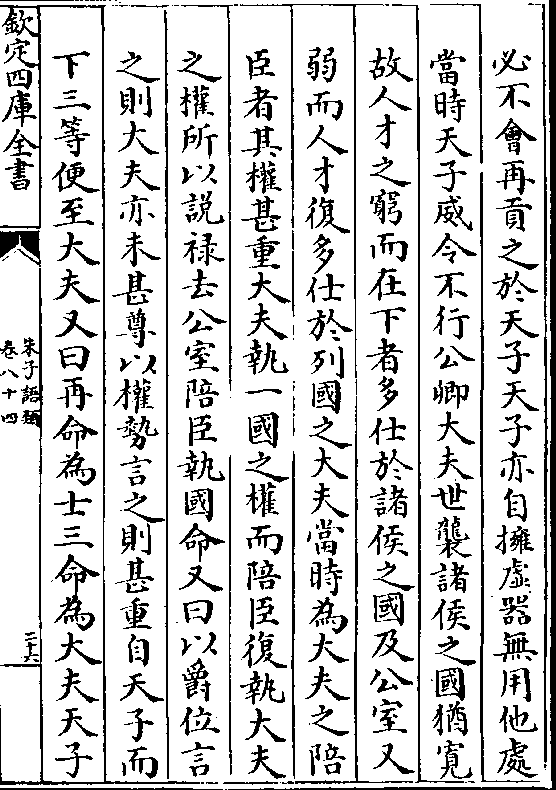 必不會再貢之於天子天子亦自擁虛器無用他處
當時天子威令不行公卿大夫世襲諸侯之國猶寛
故人才之窮而在下者多仕於諸侯之國及公室又
弱而人才復多仕於列國之大夫當時為大夫之陪
臣者其權甚重大夫執一國之權而陪臣復執大夫
之權所以説禄去公室陪臣執國命又曰以爵位言
之則大夫亦未甚尊以權勢言之則甚重自天子而
下三等便至大夫又曰再命為士三命為大夫天子
欽定四庫全書
朱子語類
卷八十四
二十六